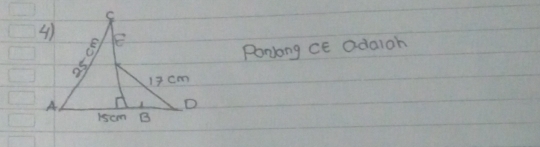 4)
C
E
25 cm
Panjang CE adalah
17 cm
A
D
15cm B